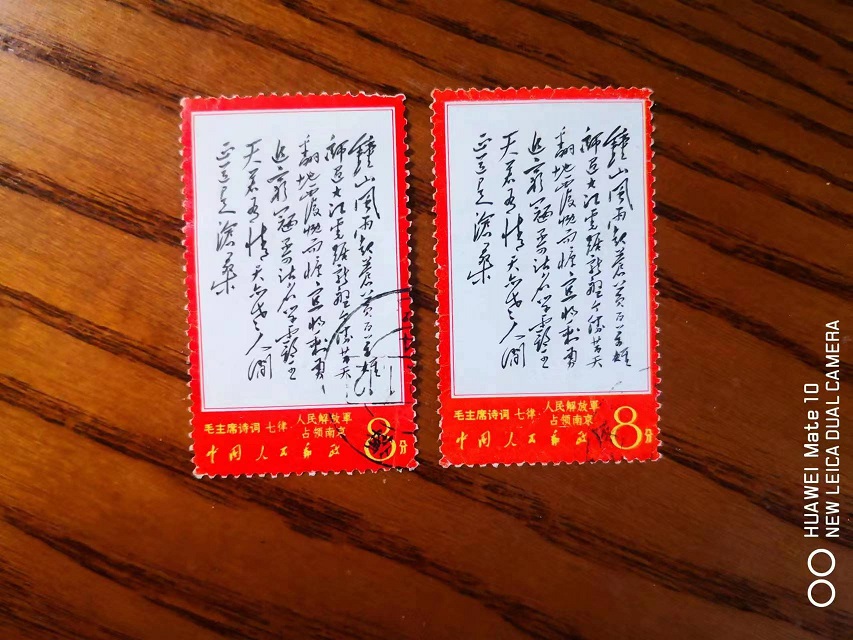 鐘山風雨起蒼黄百万雄
師过大江虎踞龍盤今勝昔天
翻地覆慨而慷宜將剩勇
追窮寇不可沽名學霸王
天若有情天亦老人間
正道是滄桑
毛主席诗词 七律· 人民解放軍
占领南京
中国人民邮政
8分
鐘山風雨起蒼黄百万雄
師过大江虎踞龍盤今勝昔天
翻地覆慨而慷宜將剩勇
追窮寇不可沽名學霸王
天若有情天亦老人間
正道是滄桑
毛主席诗词 七律· 人民解放軍
占领南京
中国人民邮政
8分
HUAWEI Mate 10
NEW LEICA DUAL CAMERA